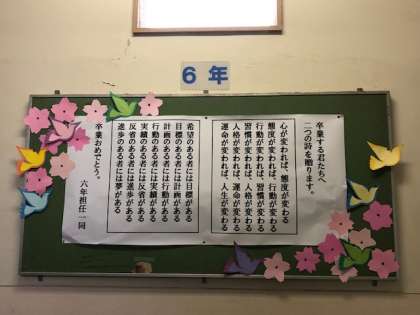 6年
卒業する君たちへ
二つの詩を贈ります。
心が変われば、態度が変わる
態度が変われば、行動が変わる
行動が変われば、習慣が変わる
習慣が変われば、人格が変わる
人格が変われば、運命が変わる
運命が変われば、人生が変わる
希望のある者には目標がある
目標のある者には計画がある
計画のある者には行動がある
行動のある者には実績がある
実績のある者には反省がある
反省のある者には進歩がある
進歩のある者には夢がある
卒業おめでとう。
六年担任一同